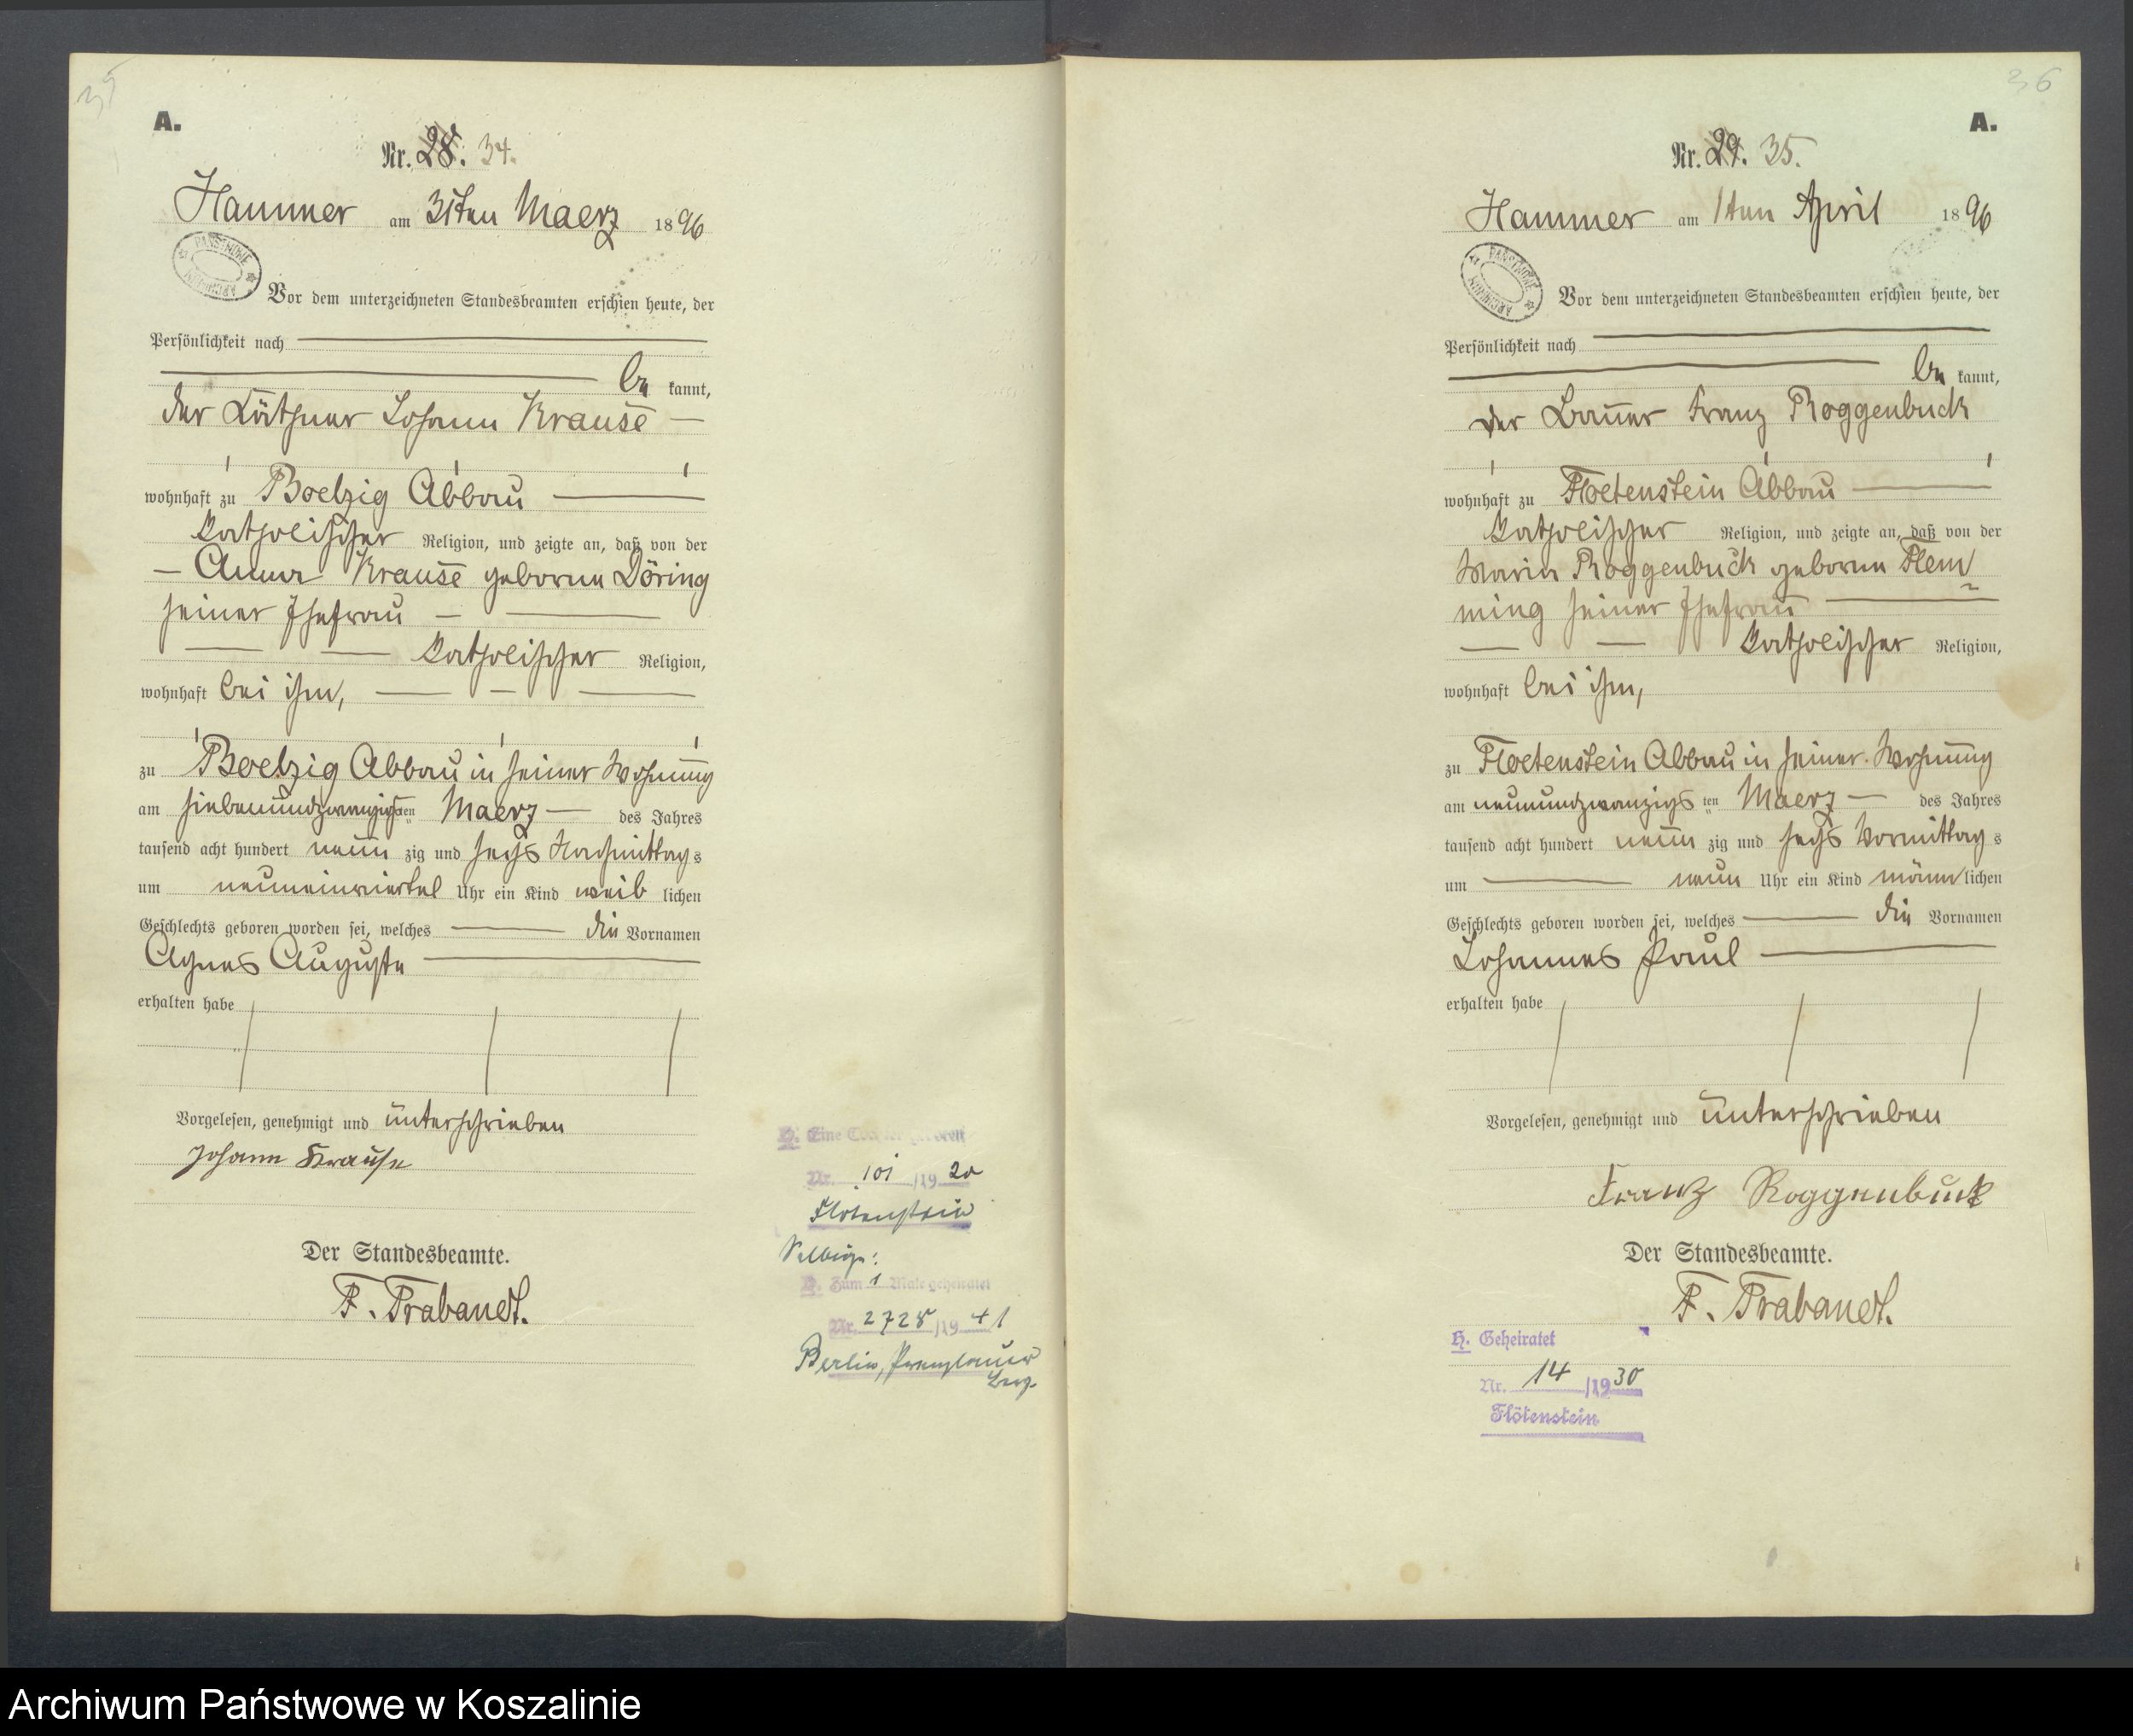 35
A.
Nr. 28. 34.
Hammer am 31ten Maerz 1896
PAŃSTWOWE ARCHIWUM
Vor dem unterzeichneten Standesbeamten erschien heute, der
Persönlichkeit nach
be kannt,
der Käthner Johann Krause
wohnhaft zu Boelzig Abbau
katholischer Religion, und zeigte an, daß von der
Anna Krause geborne Döring
seiner Ehefrau
katholischer Religion,
wohnhaft bei ihm,
zu Boelzig Abbau in seiner Wohnung
am siebenundzwanzigsten Maerz des Jahres
tausend acht hundert neun zig und sechs Nachmittags
um neuneinviertel Uhr ein Kind weib lichen
Geschlechts geboren worden sei, welches die Vornamen
Agnes Auguste
erhalten habe
Vorgelesen, genehmigt und unterschrieben
Johann Krause
Der Standesbeamte.
F. Trabandt.
Eine geboren
Nr. 101 /19 20
Flötenstein
Selbige:
Zum 1 Male geheiratet
Nr. 2728 /19 41
Berlin, Prenzlauer
Berg
36
A.
Nr. 29. 35.
Hammer am 1ten April 1896
PAŃSTWOWE ARCHIWUM
Vor dem unterzeichneten Standesbeamten erschien heute, der
Persönlichkeit nach
be kannt,
der Bauer Franz Roggenbuck
wohnhaft zu Floetenstein Abbau
katholischer Religion, und zeigte an, daß von der
Maria Roggenbuck geborne Flem
ming seiner Ehefrau
katholischer Religion,
wohnhaft bei ihm,
zu Floetenstein Abbau in seiner Wohnung
am neunundzwanzigs ten Maerz des Jahres
tausend acht hundert neun zig und sechs Vormittag s
um neun Uhr ein Kind männ lichen
Geschlechts geboren worden sei, welches die Vornamen
Johannes Paul
erhalten habe
Vorgelesen, genehmigt und unterschrieben
Franz Roggenbuck
Der Standesbeamte.
F. Trabandt.
H. Geheiratet
Nr. 14 /19 30
Flötenstein
Archiwum Państwowe w Koszalinie